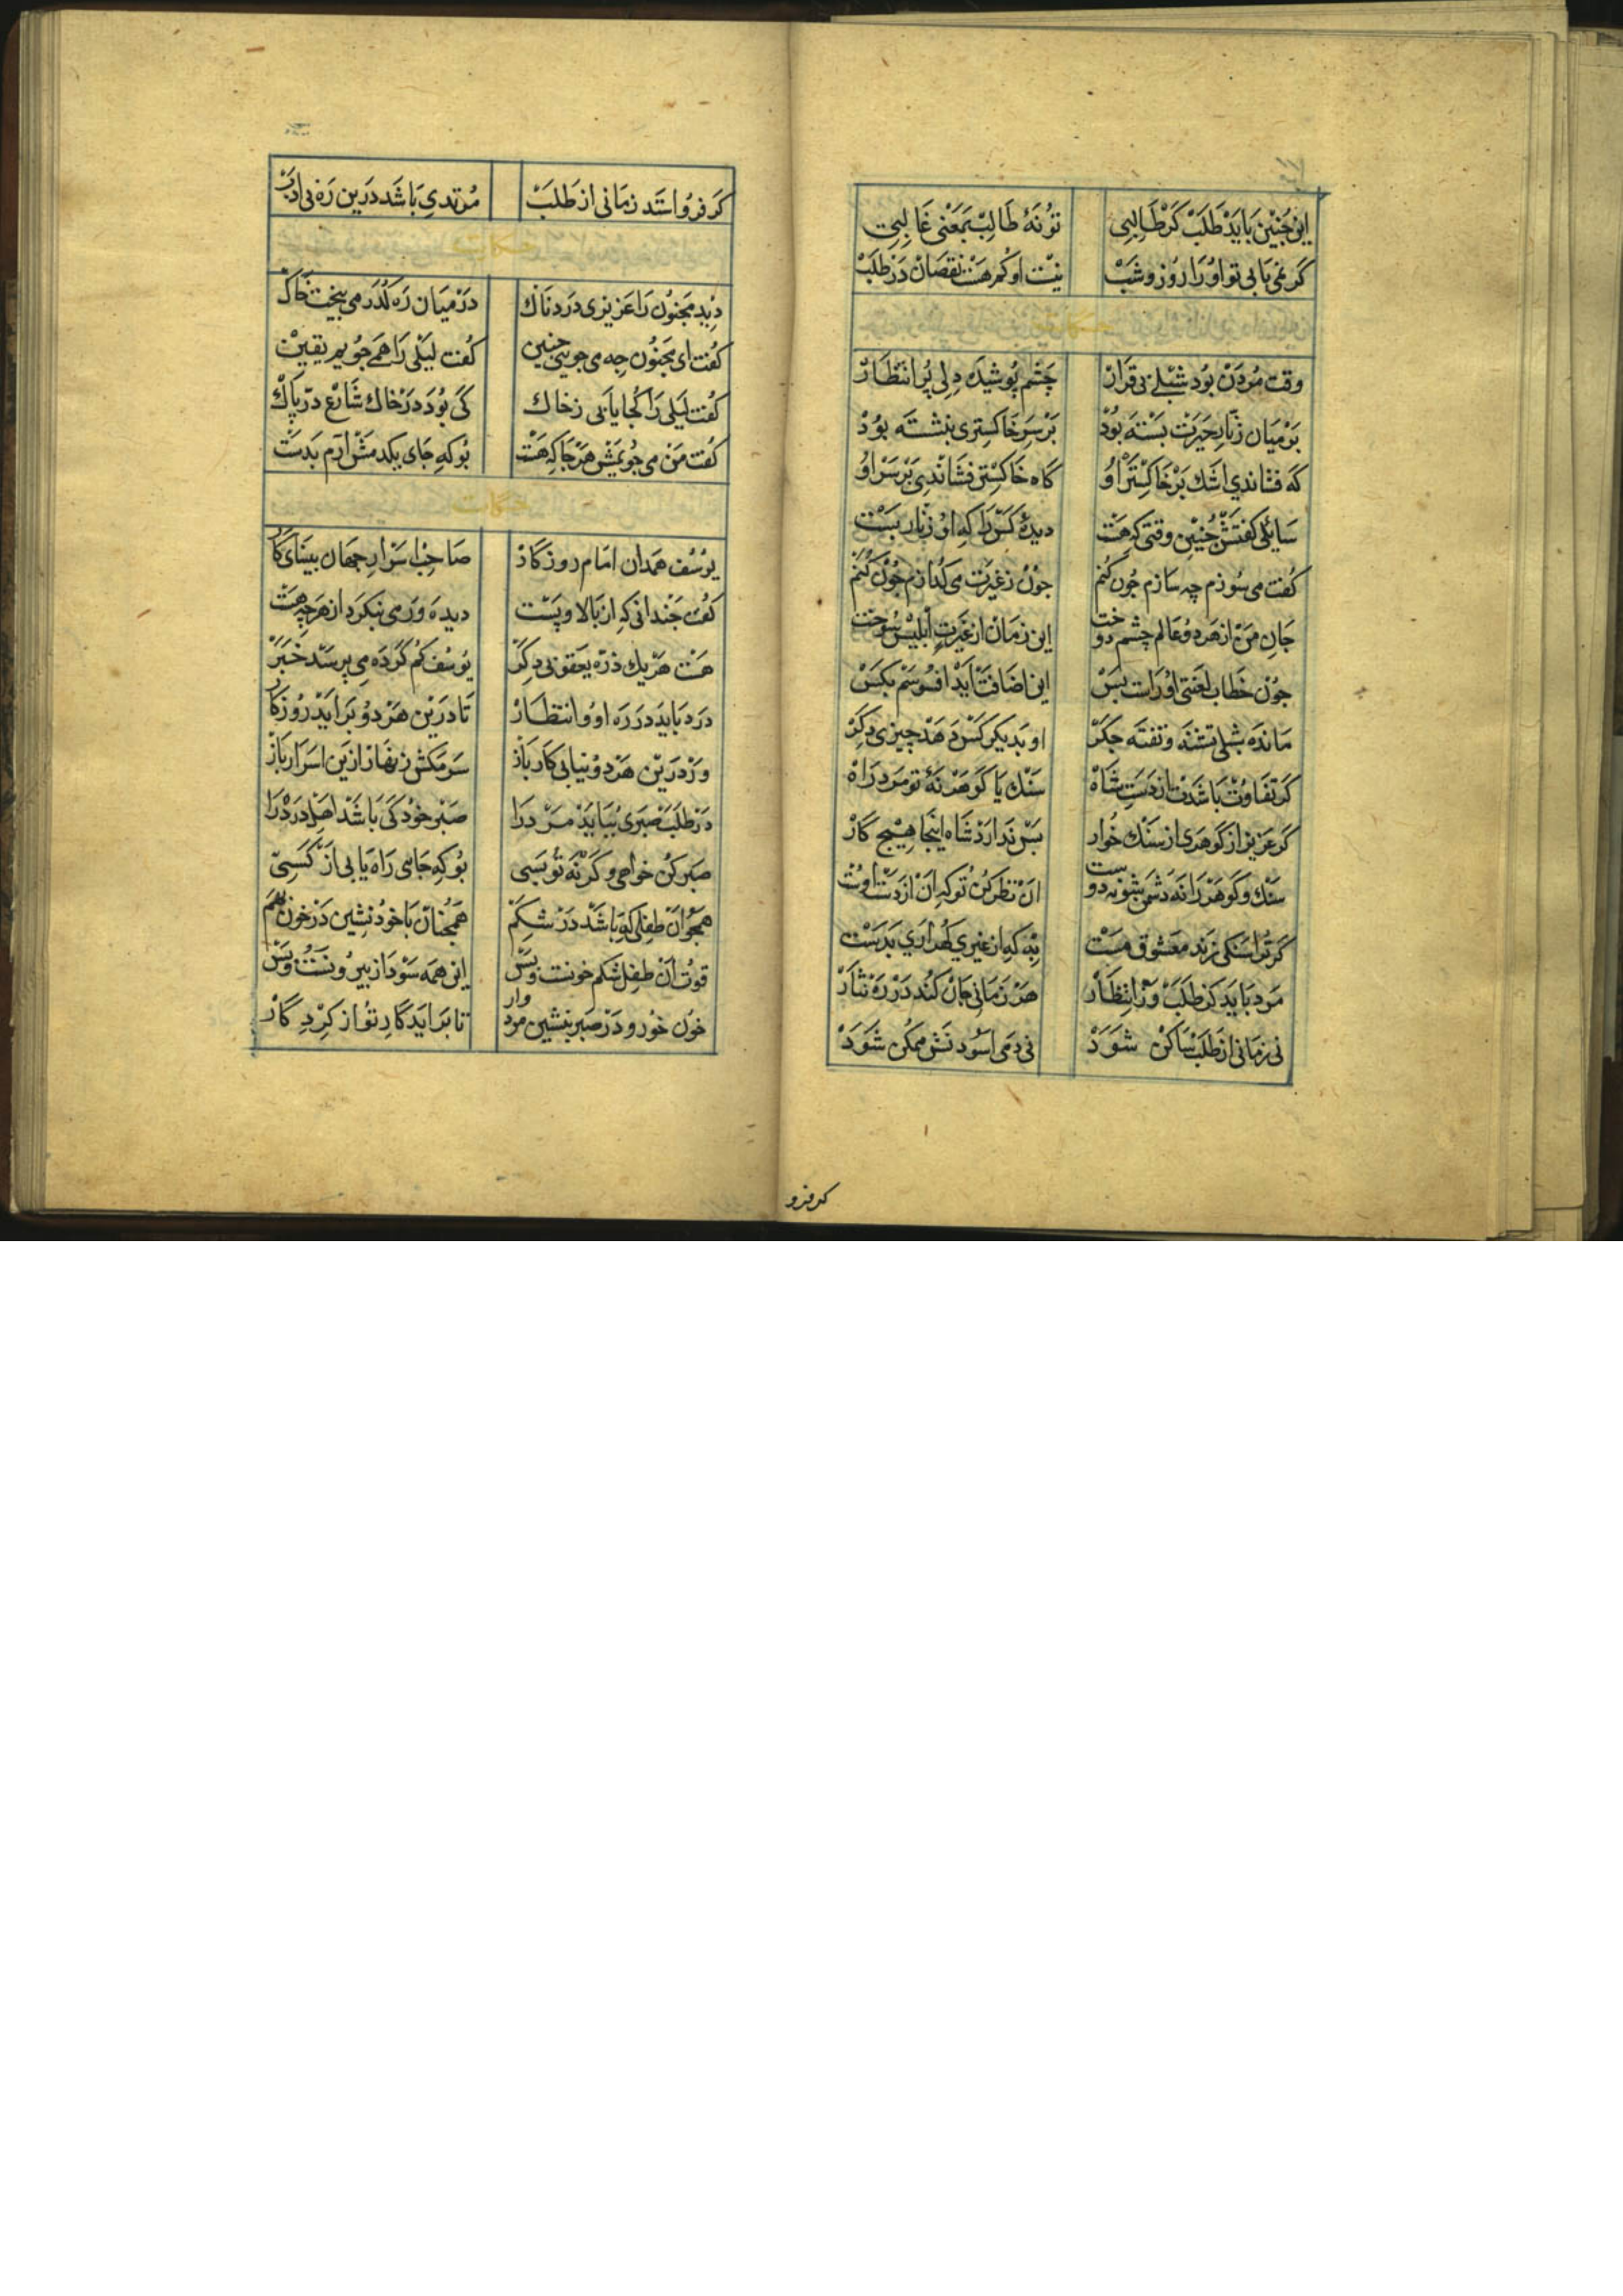 این چنین باید طلب کر طالبی توُنهٔ طالب بمعنی غالبی
کر نمی یابی تو اورا روز و شب نیست او کم هست نقصان در طلب
حکایت
وقت مردن بود شبلی بی قرار چشم پوشیده دلی پر انتظار
بر میان زنار حیرت بسته بود بر سر خاکستری بنشسته بود
که فشاندی اشک بر خاکستر او گاه خاکستر فشاندی بر سر او
سایلی کفتش چنین وقتی که هست دیدهٔ کس را که او زنار بست
کفت می سوزم چه سازم چون کنم چون ز غیرت می کدازم چون کنم
جان من از هر دو عالم چشم دوخت این زمان از غیرت ابلیس سوخت
چون خطاب لعنتی اوراست بس این اضافت آید افسوسم بکس
مانده شبلی تشنه و تفته جکر او بدیکر کس دهد چیزی دکر
کر تفاوت باشدت از دست شاه سنک یا کوهر نهٔ تو مرد راه
کر عزیز از کوهری از سنک خوار بس ندارد شاه اینجا هیچ کار
سنک و کوهر را نه دشمن شو نه دوست آن نظر کن تو که آن از دست اوست
کر ترا سنکی زند معشوق مست به که از غیری کهر آری بدست
مرد باید کز طلب و ز انتظار هر زمانی جان کند در ره نثار
نی زمانی از طلب ساکن شود نی دمی آسودنش ممکن شود
کر فرو
کر فرو استد زمانی از طلب مرتدی باشد درین ره بی ادب
حکایت
دید مجنون را عزیزی دردناک در میان ره کذر می بیخت خاک
کفت ای مجنون چه می جویی چنین کفت لیلی را همی جویم یقین
کفت لیلی را کجا یابی ز خاک کی بود در خاک شارع در پاک
کفت من می جویمش هر جا که هست بو که جای یکدمش آرم بدست
حکایت
یوسف همدان امام روزکار صاحب اسرار جهان بینای کار
کفت چندانی که از بالا و پست دیده وری بنکرد از هر چه هست
هست هر یک ذره یعقوبی دکر یوسف کم کرده می پرسد خبر
درد باید در ره او و انتظار تا درین هر دو برآید روزکار
ور درین هر دو نیابی کار باز سر مکش زنهار ازین اسرار باز
در طلب صبری بباید مرد را صبر خود کی باشد اهل درد را
صبر کن خواهی و کرنه تو بسی بو که جایی راه یابی از کسی
همچو آن طفلی که باشد در شکم همچنان با خود نشین در خون بهم
قوت آن طفل شکم خونست و بس این همه سودا ز بیرونست و بس
خون خور و در صبر بنشین مردوار تا برآید کار تو از کردکار